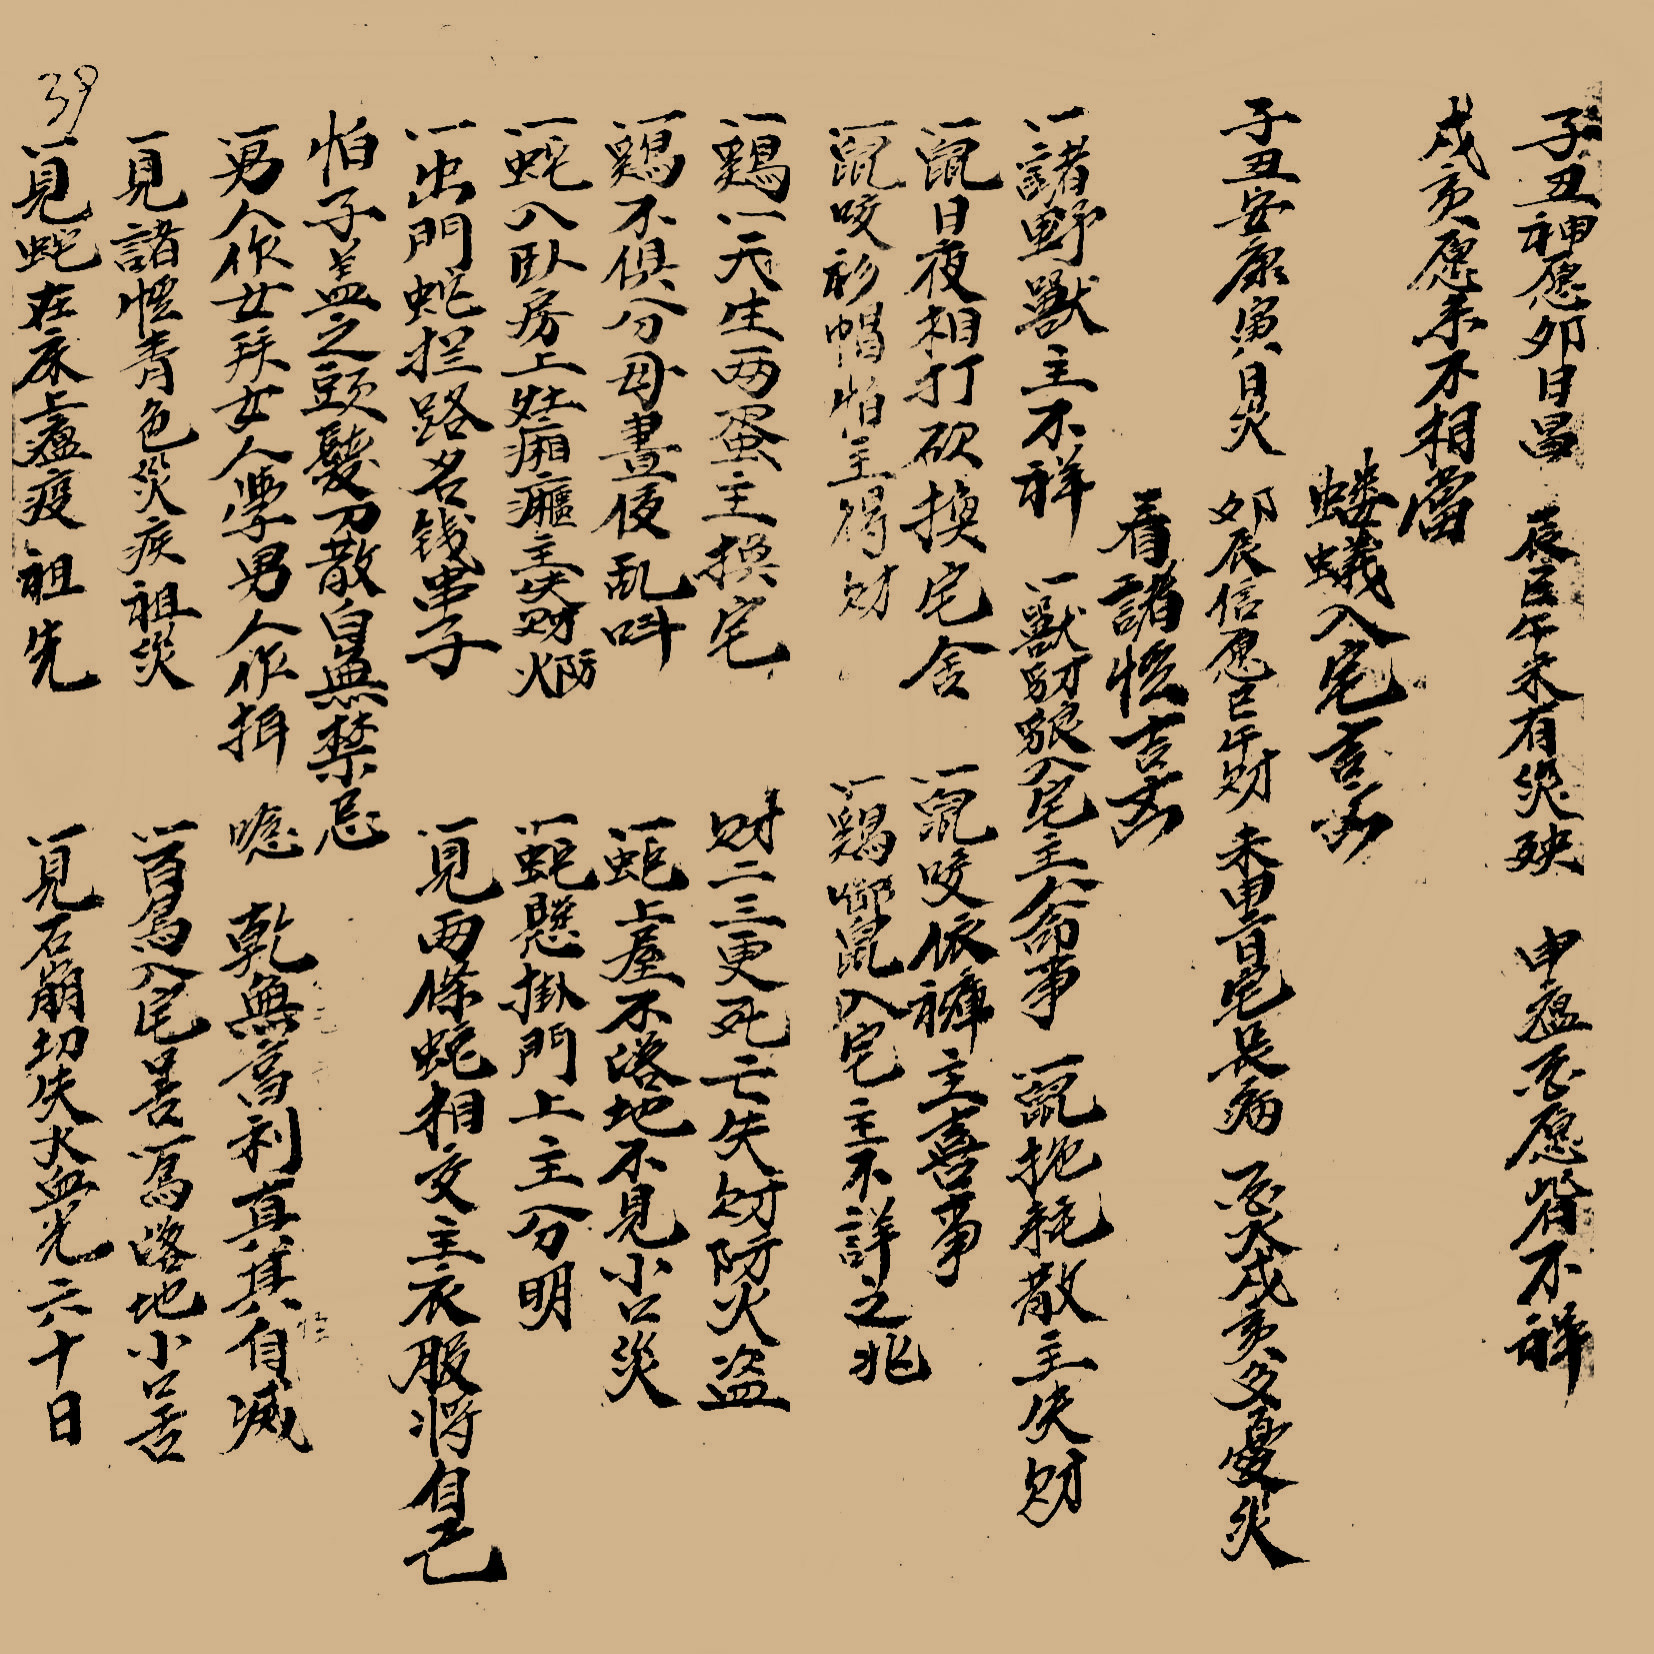 子丑神愿卯日昌 辰巳午未有災殃 申瘟 愿 不祥
戌亥愿系不相當
螻蟻入宅吉凶
子丑安康寅日災 卯辰信愿巳午財 未申 日宅長病 酉火戌亥多憂災
看諸怪吉凶
一諸野獸主不祥 一獸 入宅主人命事 一鼠 耗散主失財
一鼠日夜相打砍換宅舍 一鼠咬依褲主喜事
一鼠咬衫帽怕主得財 一鷄 鼠入宅主不詳之兆
一鷄一天生两蛋主換宅 財二三更死亡失財防火盗
一鷄不俱分母晝夜乱叫 一蛇上屋不落地不見小口災
一蛇入臥房上灶 主失財防火 一蛇懸掛門上主分明
一出門蛇拦路名钱串子 一見两條蛇相交主衣服将自己
怕子盖之頭髮刀散自無禁忌
一男人作女拜女人學男人作揖 乾無 利真其自滅
一見諸怪青色災疾祖災 一百鳥入宅善一鳥落地小口舌
一見蛇在床上瘟疫祖先 一見石崩切失火血光六十日
39